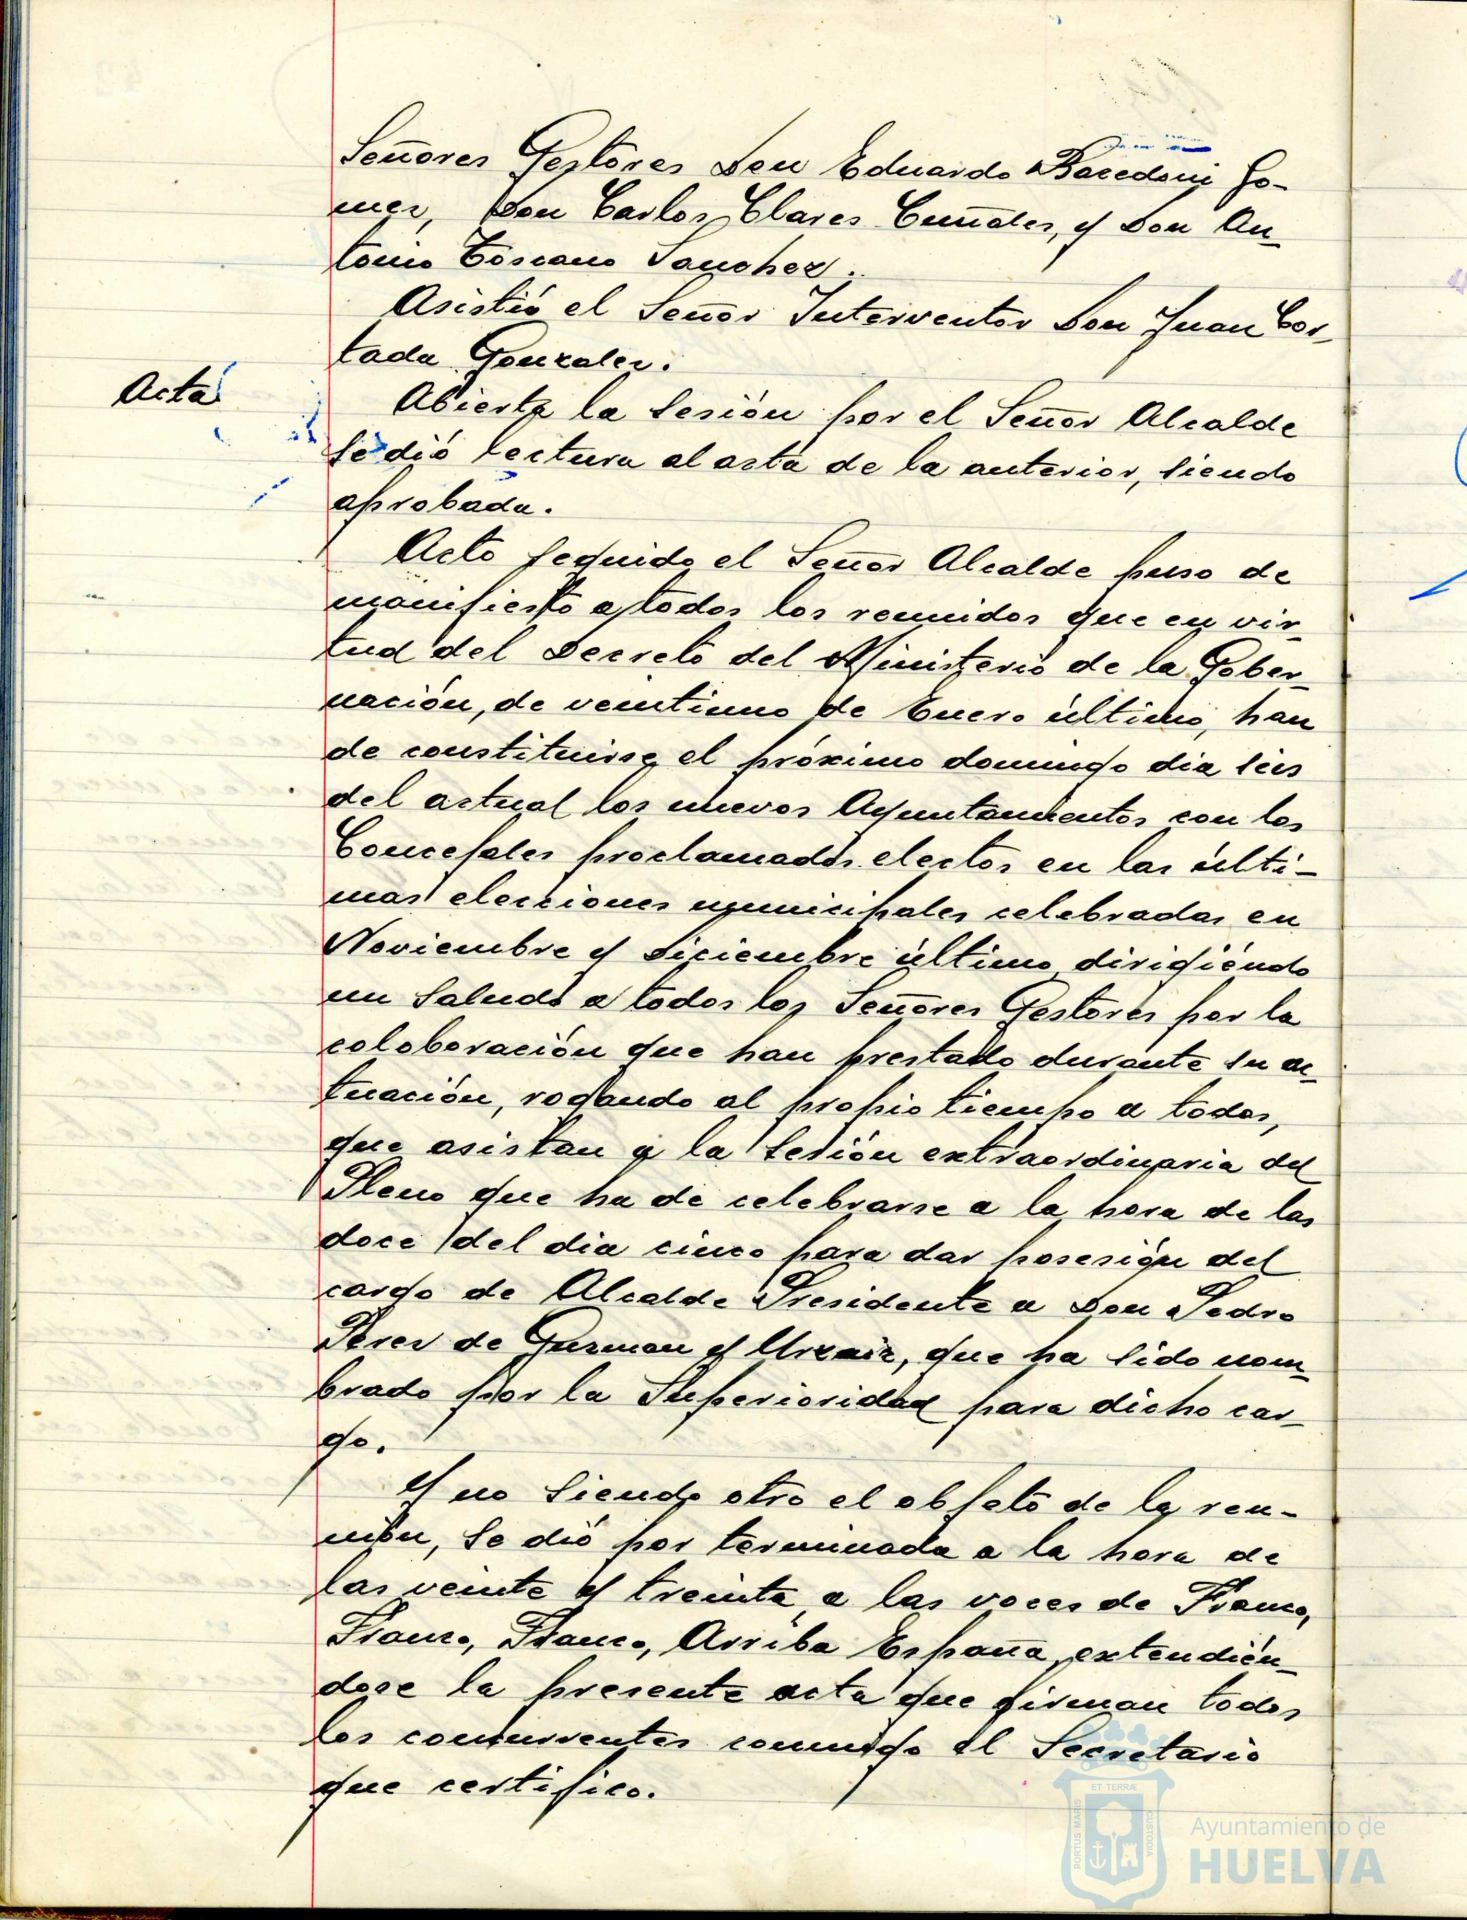 Señores Gestores Don Eduardo Bacedoni Go-
mez, Don Carlos Clares Cumales, y Don An-
tonio Toscano Sanchez.
Asistió el Señor Interventor Don Juan Cor-
tada Gonzalez.
Acta
Abierta la Sesión por el Señor Alcalde
se dió lectura al acta de la anterior, siendo
aprobada.
Acto seguido el Señor Alcalde puso de
manifiesto a todos los reunidos que en vir-
tud del Decreto del Ministerio de la Gober-
nación, de veintiuno de Enero último, han
de constituirse el próximo domingo dia seis
del actual los nuevos Ayuntamientos con los
Concejales proclamados electos en las últi-
mas elecciones municipales celebradas en
Noviembre y Diciembre último, dirigiéndo
un saludo a todos los Señores Gestores por la
coloboración que han prestado durante su ac-
tuación, rogando al propio tiempo a todos,
que asistan a la Sesión extraordinaria del
Pleno que ha de celebrarse a la hora de las
doce del dia cinco para dar posesión del
cargo de Alcalde Presidente a Don Pedro
Perez de Guzman y Urzaiz, que ha sido nom-
brado por la Superioridad para dicho car-
go.
Y no siendo otro el objeto de la reu-
nión, se dió por terminada a la hora de
las veinte y treinta, a las voces de Franco,
Franco, Franco, Arriba España, extendién-
dose la presente acta que firman todos
los concurrentes conmigo el Secretario
que certifico.
ET TERRÆ
PORTUS MARIS
CUSTODIA
Ayuntamiento de
HUELVA